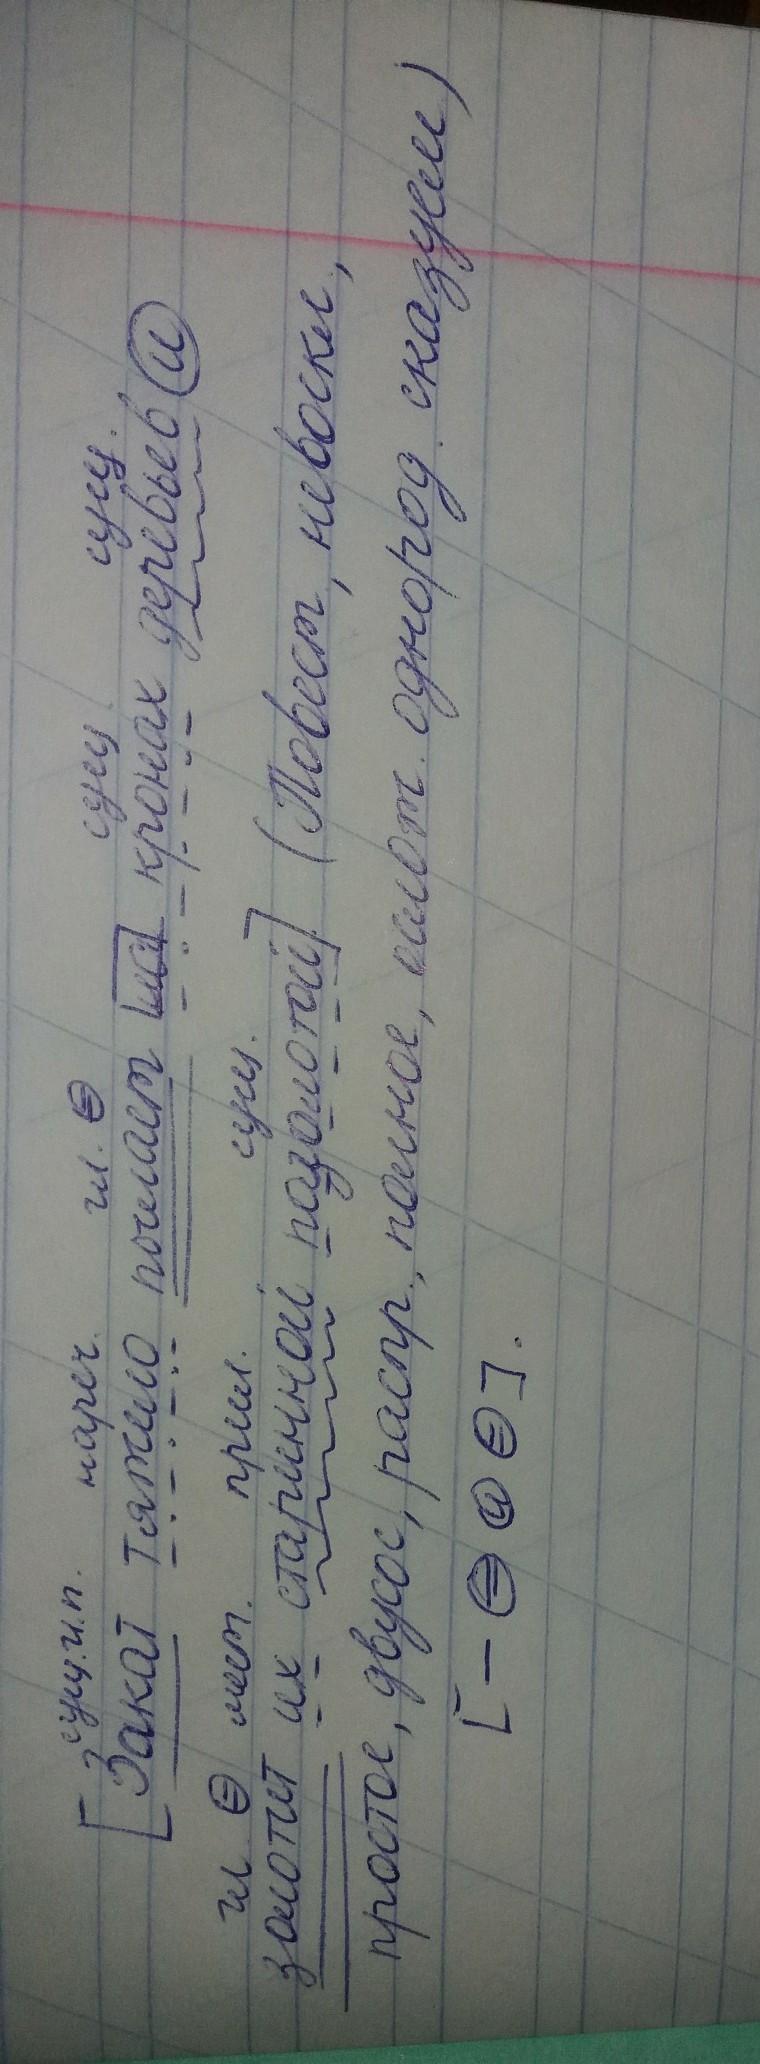 сущ.и.п. нареч. гл. сущ сущ.
[Закат тяжело пылает на кронах деревьев и
гл мест. прил. сущ.
золотит их старинной позолотой] (Повест, невоскл,
простое, двусос, распр., полное, ослот. однород. сказуем)
[– = и =].